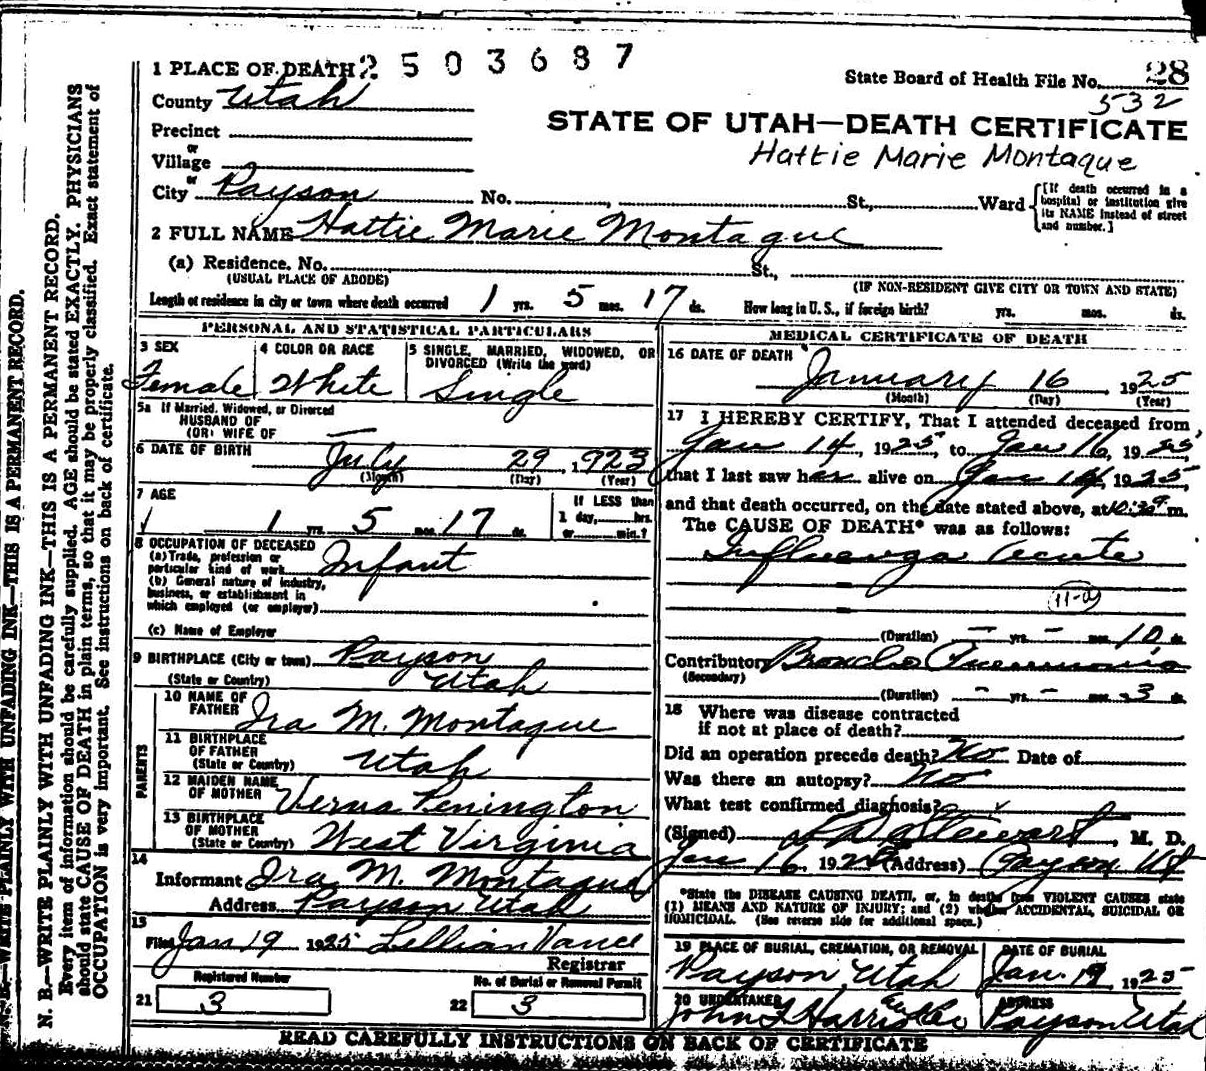 1 PLACE OF DEATH 2503687
State Board of Health File No. 28
532
County Utah
STATE OF UTAH—DEATH CERTIFICATE
Hattie Marie Montague
Precinct
or
Village
or
City Payson No. , St., Ward
[If death occurred in a hospital or institution give its NAME instead of street and number.]
2 FULL NAME Hattie Marie Montague
(a) Residence. No. St.,
(USUAL PLACE OF ABODE) (IF NON-RESIDENT GIVE CITY OR TOWN AND STATE)
Length of residence in city or town where death occurred 1 yrs. 5 mos. 17 ds. How long in U. S., if foreign birth? yrs. mos. ds.
PERSONAL AND STATISTICAL PARTICULARS
3 SEX
Female
4 COLOR OR RACE
White
5 SINGLE, MARRIED, WIDOWED, OR
DIVORCED (Write the word)
Single
5a If Married, Widowed, or Divorced
HUSBAND OF
(OR) WIFE OF —
6 DATE OF BIRTH July 29, 1923
(Month) (Day) (Year)
7 AGE
1 yrs. 5 mos. 17 ds.
If LESS than
1 day, hrs.
or min.?
8 OCCUPATION OF DECEASED
(a) Trade, profession or
particular kind of work Infant
(b) General nature of industry,
business, or establishment in
which employed (or employer)
(c) Name of Employer
9 BIRTHPLACE (City or town) Payson
(State or Country) Utah
PARENTS
10 NAME OF
FATHER Ira M. Montague
11 BIRTHPLACE
OF FATHER
(State or Country) Utah
12 MAIDEN NAME
OF MOTHER Verna Penington
13 BIRTHPLACE
OF MOTHER
(State or Country) West Virginia
14
Informant Ira M. Montague
Address Payson Utah
15
Filed Jan 19 1925 Lillian Vance
Registrar
Registered Number
21 3
No. of Burial or Removal Permit
22 3
MEDICAL CERTIFICATE OF DEATH
16 DATE OF DEATH
January 16 1925
(Month) (Day) (Year)
17 I HEREBY CERTIFY, That I attended deceased from
Jan 14, 1925, to Jan 16, 1925,
that I last saw her alive on Jan 1925,
and that death occurred, on the date stated above, at m.
The CAUSE OF DEATH* was as follows:
Influenza acute
11-09
(Duration) — yrs. — mos. 10 ds.
Contributory Broncho Pneumonia
(Secondary)
(Duration) - yrs. - mos. 3 ds.
18 Where was disease contracted
if not at place of death?
Did an operation precede death? No Date of
Was there an autopsy? No
What test confirmed diagnosis?
(Signed) Stewart, M. D.
Jan 16, 1925 (Address) Payson Ut
*State the DISEASE CAUSING DEATH, or, in deaths from VIOLENT CAUSES state
(1) MEANS AND NATURE OF INJURY; and (2) whether ACCIDENTAL, SUICIDAL OR
HOMICIDAL. (See reverse side for additional space.)
19 PLACE OF BURIAL, CREMATION, OR REMOVAL
Payson, Utah
DATE OF BURIAL
Jan. 19 1925
20 UNDERTAKER
John Harris
ADDRESS
Payson Utah
READ CAREFULLY INSTRUCTIONS ON BACK OF CERTIFICATE
N. B.—WRITE PLAINLY WITH UNFADING INK—THIS IS A PERMANENT RECORD.
N. B.—WRITE PLAINLY WITH UNFADING INK—THIS IS A PERMANENT RECORD.
Every item of information should be carefully supplied. AGE should be stated EXACTLY. PHYSICIANS
should state CAUSE OF DEATH in plain terms, so that it may be properly classified. Exact statement of
OCCUPATION is very important. See instructions on back of certificate.